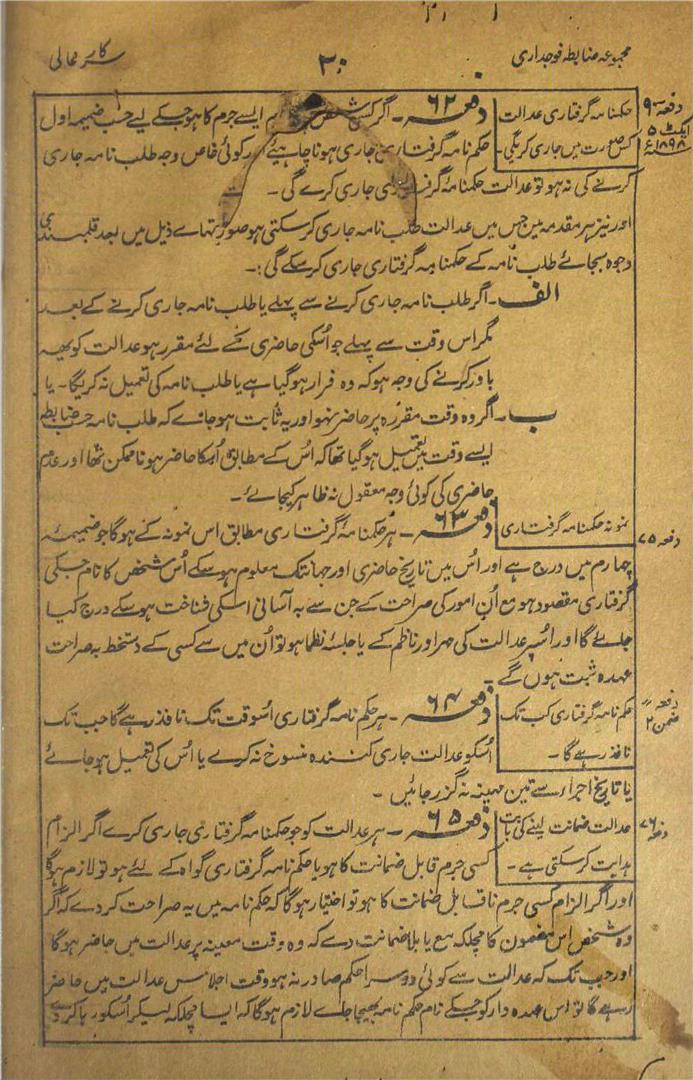 مجموعہ ضابطہ فوجداری
۳۰
سرکار عالی
دفعہ ۹۰
ایکٹ ۵
۱۸۹۸ء
حکمنامہ گرفتاری عدالت
کس صورت میں جاری کریگی۔
دفعہ ۶۲ ۔ اگر کسی شخص ایسے جرم کا ہو جسکے لیے حسب ضمیمہ اول
حکم نامہ گرفتاری جاری ہونا چاہیئے اور کوئی خاص وجہ طلب نامہ جاری
کرنے کی نہ ہو تو عدالت حکمنامۂ گرفتاری جاری کرے گی ۔
اور نیز ہر مقدمہ میں جس میں عدالت طلب نامہ جاری کر سکتی ہو صورتہائے ذیل میں بعد قلمبندی
وجوہ بجائے طلب نامہ کے حکمنامہ گرفتاری جاری کر سکے گی :۔
الف ۔ اگر طلب نامہ جاری کرنے سے پہلے یا طلب نامہ جاری کرنے کے بعد
مگر اس وقت سے پہلے جو اُسکی حاضری کے لئے مقرر ہو عدالت کو یہ
باور کرنے کی وجہ ہو کہ وہ فرار ہو گیا ہے یا طلب نامہ کی تعمیل نہ کریگا ۔ یا
ب ۔ اگر وہ وقت مقررہ پر حاضر نہو اور یہ ثابت ہو جائے کہ طلب نامہ حسب ضابطہ
ایسے وقت میں تعمیل ہو گیا تھا کہ اُس کے مطابق اُسکا حاضر ہونا ممکن تھا اور عدم
حاضری کی کوئی وجہ معقول نہ ظاہر کیجائے ۔
دفعہ ۷۵
نمونہ حکمنامہ گرفتاری
دفعہ ۶۳ ۔ ہر حکمنامۂ گرفتاری مطابق اس نمونہ کے ہوگا جو ضمیمۂ
چہارم میں درج ہے اور اُس میں تاریخ حاضری اور جہانتک معلوم ہو سکے اُس شخص کا نام جسکی
گرفتاری مقصود ہو مع اُن امور کی صراحت کے جن سے بہ آسانی اسکی شناخت ہو سکے درج کیا
جائے گا اور اُسپر عدالت کی مہر اور ناظم کے یا جلسۂ نظما ہو تو اُن میں سے کسی کے دستخط بہ صراحت
عہدہ ثبت ہوں گے ۔
دفعہ "
ضمن ۲
حکم نامہ گرفتاری کب تک
نافذ رہے گا ۔
دفعہ ۶۴ ۔ ہر حکم نامہ گرفتاری اُسوقت تک نافذ رہے گا جب تک
اُسکو عدالت جاری کنندہ منسوخ نہ کرے یا اُس کی تعمیل ہو جائے
یا تاریخ اجراء سے تین مہینہ نہ گزر جائیں ۔
دفعہ ۷۶
عدالت ضمانت لینے کی بابت
ہدایت کر سکتی ہے ۔
دفعہ ۶۵ ۔ ہر عدالت کو جو حکمنامہ گرفتاری جاری کرے اگر الزام
کسی جرم قابل ضمانت کا ہو یا حکم نامہ گرفتاری گواہ کے لئے ہو تو لازم ہوگا
اور اگر الزام کسی جرم ناقابل ضمانت کا ہو تو اختیار ہوگا کہ حکم نامہ میں یہ صراحت کر دے کہ اگر
وہ شخص اس مضمون کا مچلکہ مع یا بلا ضمانت دے کہ وہ وقت معینہ پر عدالت میں حاضر ہوگا
اور جب تک کہ عدالت سے کوئی دوسرا حکم صادر نہ ہو وقت اجلاس عدالت میں حاضر
رہے گا تو اس عہدہ دار کو جسکے نام حکم نامہ بھیجا جائے لازم ہوگا کہ ایسا مچلکہ لیکر اُسکو رہا کر دے